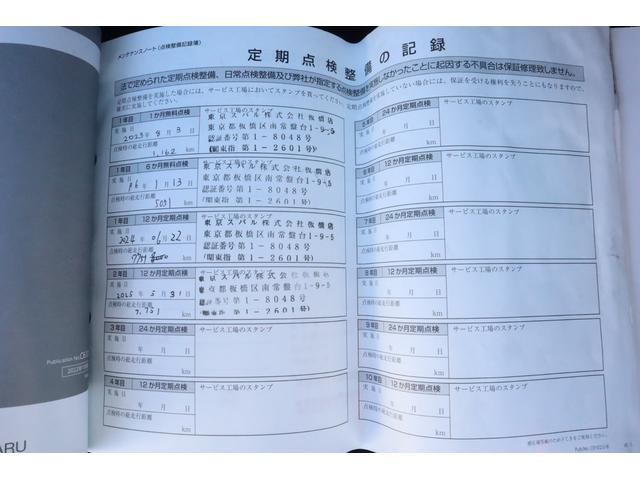 メンテナンスノート（点検整備記録簿）
定期点検整備の記録
法で定められた定期点検整備、日常点検整備及び弊社が指定する点検整備を実施しなかったことに起因する不具合は保証修理致しません。
定期点検整備を実施した場合には、サービス工場においてスタンプを貰ってください。定期点検整備を実施していない場合には、保証を受ける権利を失うこともありますので、
確実に実施してください。
1年目 1か月無料点検
サービス工場のスタンプ
実施日 2023年 8月 3日
点検時の総走行距離
1,162 km
東京スバル株式会社板橋店
東京都板橋区南常盤台1-9-5
認証番号第1-8048号
（関東指第1-2601号）
1年目 6か月無料点検
サービス工場のスタンプ
実施日 R6年 1月 13日
点検時の総走行距離
5031 km
東京スバル株式会社板橋店
東京都板橋区南常盤台1-9-5
認証番号第1-8048号
（関東指第1-2601号）
1年目 12か月定期点検
サービス工場のスタンプ
実施日 2024年 06月 22日
点検時の総走行距離
km
東京スバル株式会社板橋店
東京都板橋区南常盤台1-9-5
認証番号第1-8048号
（関東指第1-2601号）
2年目 12か月定期点検
サービス工場のスタンプ
実施日 2025年 5月 31日
点検時の総走行距離
7,751 km
東京スバル株式会社板橋店
東京都板橋区南常盤台1-9-5
認証番号第1-8048号
（関東指第1-2601号）
3年目 24か月定期点検
サービス工場のスタンプ
実施日 年 月 日
点検時の総走行距離
km
4年目 12か月定期点検
サービス工場のスタンプ
実施日 年 月 日
点検時の総走行距離
km
24か月定期点検
サービス工場のスタンプ
実施日 年 月 日
点検時の総走行距離
km
12か月定期点検
サービス工場のスタンプ
実施日 年 月 日
点検時の総走行距離
km
7年目 24か月定期点検
サービス工場のスタンプ
実施日 年 月 日
点検時の総走行距離
km
12か月定期点検
サービス工場のスタンプ
実施日 年 月 日
点検時の総走行距離
km
9年目 24か月定期点検
サービス工場のスタンプ
実施日 年 月 日
点検時の総走行距離
km
10年目 12か月定期点検
サービス工場のスタンプ
実施日 年 月 日
点検時の総走行距離
km
Publication No.
ARU